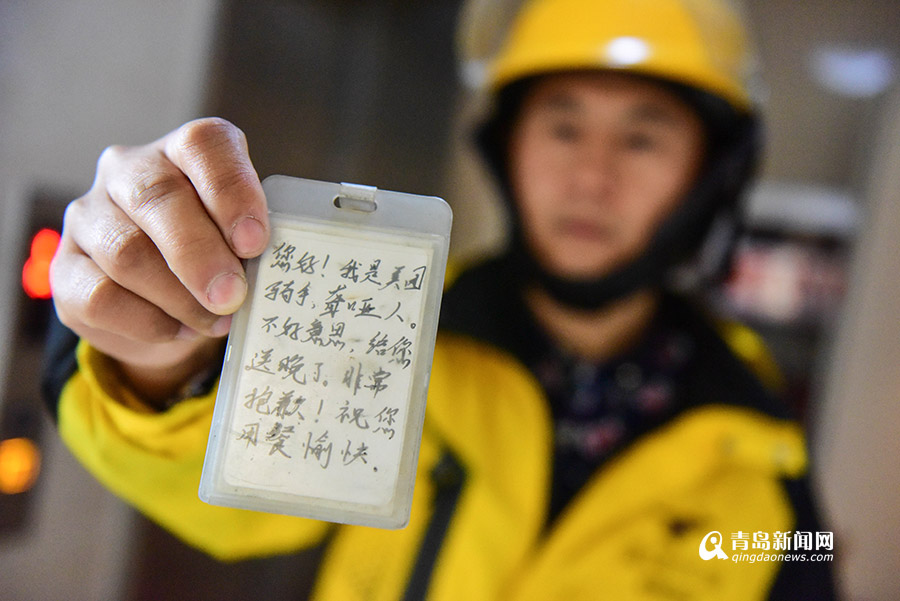 您好！我是美团
骑手，聋哑人。
不好意思，给您
送晚了。非常
抱歉！祝您
用餐愉快.
青岛新闻网
qingdaonews.com